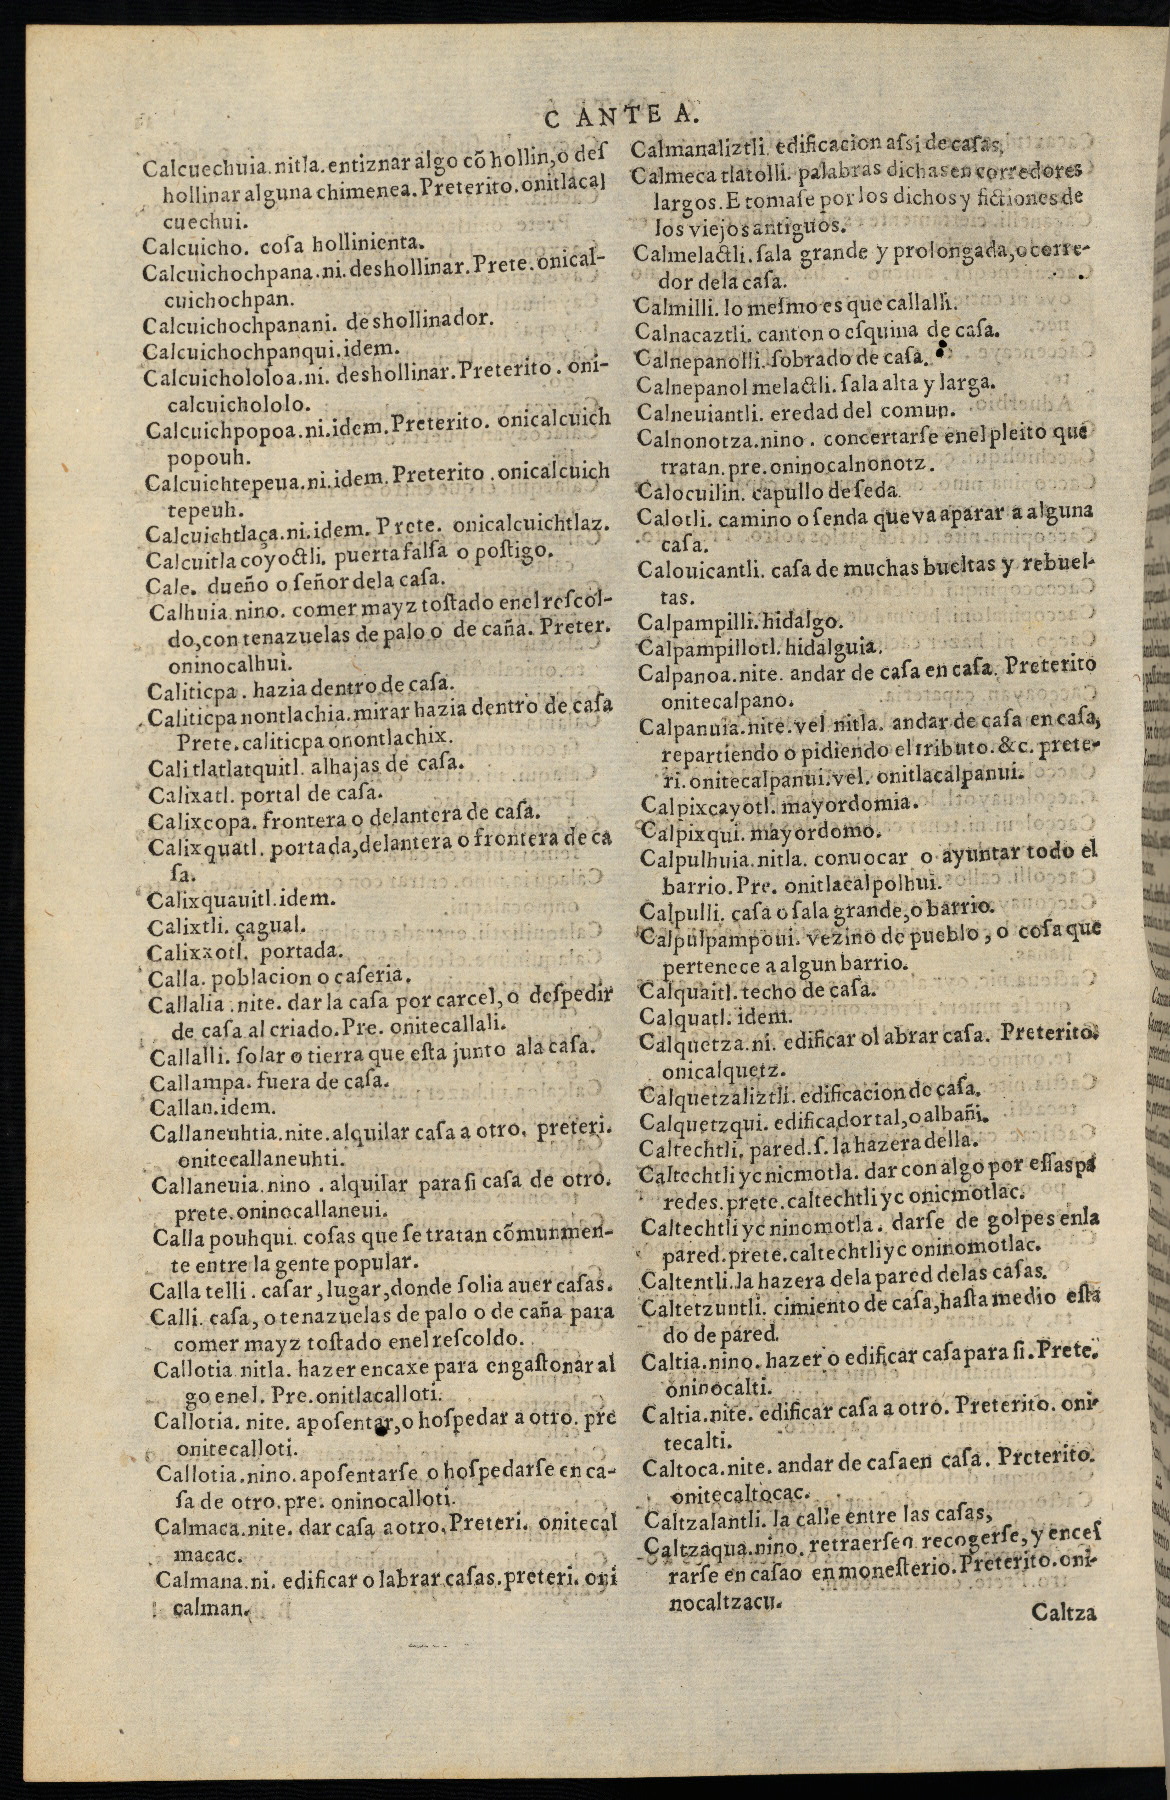 C ANTE A.
Calcuechuia.nitla.entiznar algo cõ hollin,o deſ
hollinar alguna chimenea.Preterito.onitlacal
cuechui.
Calcuicho. coſa hollinienta.
Calcuichochpana.ni.deshollinar.Prete.onical-
cuichochpan.
Calcuichochpanani. deshollinador.
Calcuichochpanqui.idem.
Calcuichololoa.ni. deshollinar.Preterito. oni-
calcuichololo.
Calcuichpopoa.ni.idem.Preterito. onicalcuich
popouh.
Calcuichtepeua.ni.idem.Preterito.onicalcuich
tepeuh.
Calcuichtlaça.ni.idem. Prete. onicalcuichtlaz.
Calcuitlacoyoctli. puerta falſa o poſtigo.
Cale. dueño o ſeñor dela caſa.
Calhuia nino. comer mayz toſtado enel reſcol-
do,con tenazuelas de palo o de caña. Preter.
oninocalhui.
Caliticpa. hazia dentro de caſa.
Caliticpa nontlachia.mirar hazia dentro de caſa
Prete.caliticpa onontlachix.
Calitlatlatquitl. alhajas de caſa.
Calixatl. portal de caſa.
Calixcopa. frontera o delantera de caſa.
Calixquatl. portada,delantera o frontera de ca
ſa.
Calixquauitl.idem.
Calixtli. çagual.
Calixxotl. portada.
Calla. poblacion o caſeria.
Callalia.nite. dar la caſa por carcel,o deſpedir
de caſa al criado.Pre. onitecallali.
Callalli. ſolar o tierra que eſta junto ala caſa.
Callampa. fuera de caſa.
Callan.idem.
Callaneuhtia.nite.alquilar caſa a otro. preteri.
onitecallaneuhti.
Callaneuia.nino. alquilar para ſi caſa de otro.
prete.oninocallaneui.
Calla pouhqui. coſas que ſe tratan cõmunmen-
te entre la gente popular.
Callatelli. caſar,lugar,donde ſolia auer caſas.
Calli. caſa, o tenazuelas de palo o de caña para
comer mayz toſtado enel reſcoldo.
Callotia nitla. hazer encaxe para engaſtonar al
go enel. Pre.onitlacalloti.
Callotia. nite. apoſentar,o hoſpedar a otro. pre
onitecalloti.
Callotia.nino.apoſentarſe o hoſpedarſe en ca-
ſa de otro.pre. oninocalloti.
Calmaca.nite. dar caſa a otro.Preteri. onitecal
macac.
Calmana.ni. edificar o labrar caſas.preteri. oni
calman.
Calmanaliztli. edificacion aſsi de caſas.
Calmeca tlatolli. palabras dichas en corredores
largos. E tomaſe por los dichos y fictiones de
los viejos antiguos.
Calmelactli. ſala grande y prolongada,o corre-
dor dela caſa.
Calmilli. lo meſmo es que callalli.
Calnacaztli. canton o eſquina de caſa.
Calnepanolli. ſobrado de caſa.
Calnepanol melactli. ſala alta y larga.
Calneuiantli. eredad del comun.
Calnonotza.nino. concertarſe enel pleito que
tratan.pre.oninocalnonotz.
Calocuilin. capullo de ſeda.
Calotli. camino o ſenda que va aparar a alguna
caſa.
Calouicantli. caſa de muchas bueltas y rebuel-
tas.
Calpampilli. hidalgo.
Calpampillotl. hidalguia.
Calpanoa.nite. andar de caſa en caſa. Preterito
onitecalpano.
Calpanuia.nite.vel nitla. andar de caſa en caſa,
repartiendo o pidiendo el tributo.&c. prete-
ri.onitecalpanui.vel. onitlacalpanui.
Calpixcayotl. mayordomia.
Calpixqui. mayordomo.
Calpulhuia.nitla. conuocar o ayuntar todo el
barrio.Pre. onitlacalpolhui.
Calpulli. caſa o ſala grande,o barrio.
Calpulpampoui. vezino de pueblo, o coſa que
pertenece a algun barrio.
Calquaitl. techo de caſa.
Calquatl. idem.
Calquetza.ni. edificar ol abrar caſa. Preterito.
onicalquetz.
Calquetzaliztli. edificacion de caſa.
Calquetzqui. edificador tal,o albañi.
Caltechtli. pared.ſ. la hazera della.
Caltechtli yc nicmotla. dar con algo por eſſas pa
redes.prete.caltechtli yc onicmotlac.
Caltechtli yc ninomotla. darſe de golpes enla
pared.prete.caltechtli yc oninomotlac.
Caltentli. la hazera dela pared delas caſas.
Caltetzuntli. cimiento de caſa,haſta medio eſta
do de pared.
Caltia.nino. hazer o edificar caſa para ſi.Prete.
oninocalti.
Caltia.nite. edificar caſa a otro. Preterito. oni-
tecalti.
Caltoca.nite. andar de caſa en caſa. Preterito.
onitecaltocac.
Caltzalantli. la calle entre las caſas,
Caltzaqua.nino. retraerſe o recogerſe, y enceſ
rarſe en caſa o en moneſterio.Preterito.oni-
nocaltzacu.
Caltza